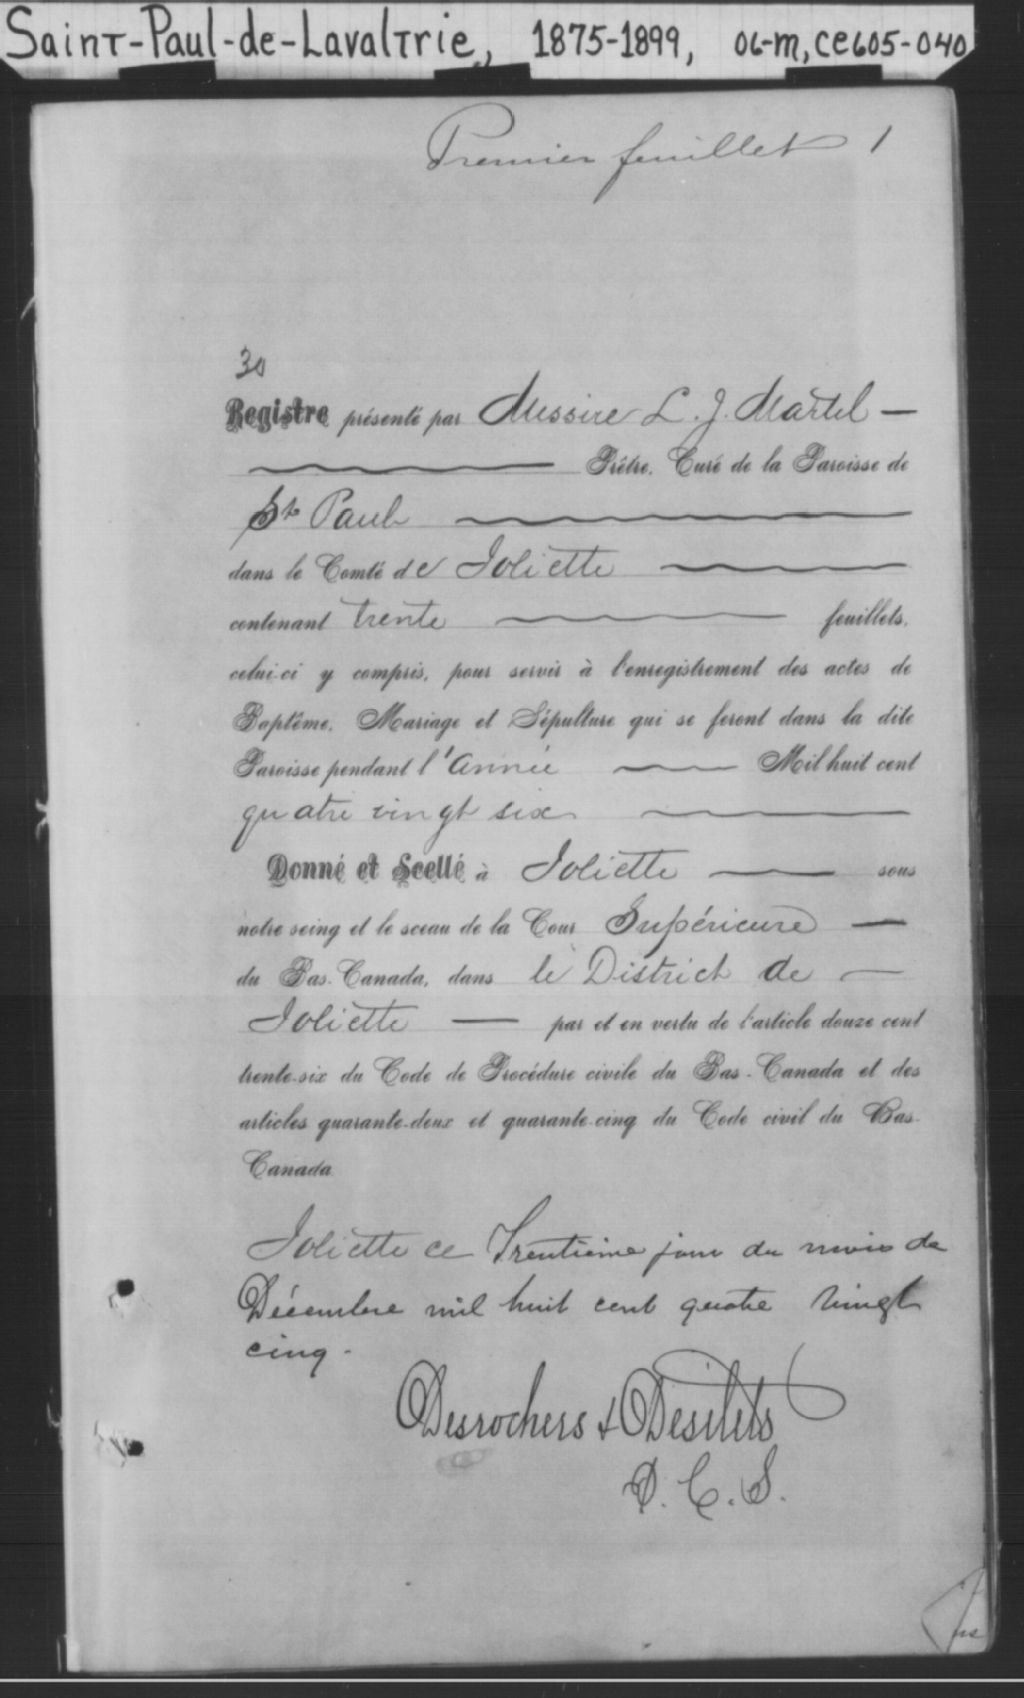 Saint-Paul-de-Lavaltrie, 1875-1899, 06-m, CE605-040
Premier feuillet 1
30
Registre présenté par Messire L. J. Martel
Prêtre, Curé de la Paroisse de
St Paul
dans le Comté de Joliette
contenant trente feuillets,
celui-ci y compris, pour servir à l'enregistrement des actes de
Baptême, Mariage et Sépulture qui se feront dans la dite
Paroisse pendant l'année Mil huit cent
quatre vingt six
Donné et Scellé à Joliette sous
notre seing et le sceau de la Cour Supérieure
du Bas-Canada, dans le District de
Joliette par et en vertu de l'article douze cent
trente-six du Code de Procédure civile du Bas-Canada et des
articles quarante-deux et quarante-cinq du Code civil du Bas-
Canada
Joliette ce Trentième jour du mois de
Décembre mil huit cent quatre vingt
cinq.
Desrochers & Desilets
P. C. S.